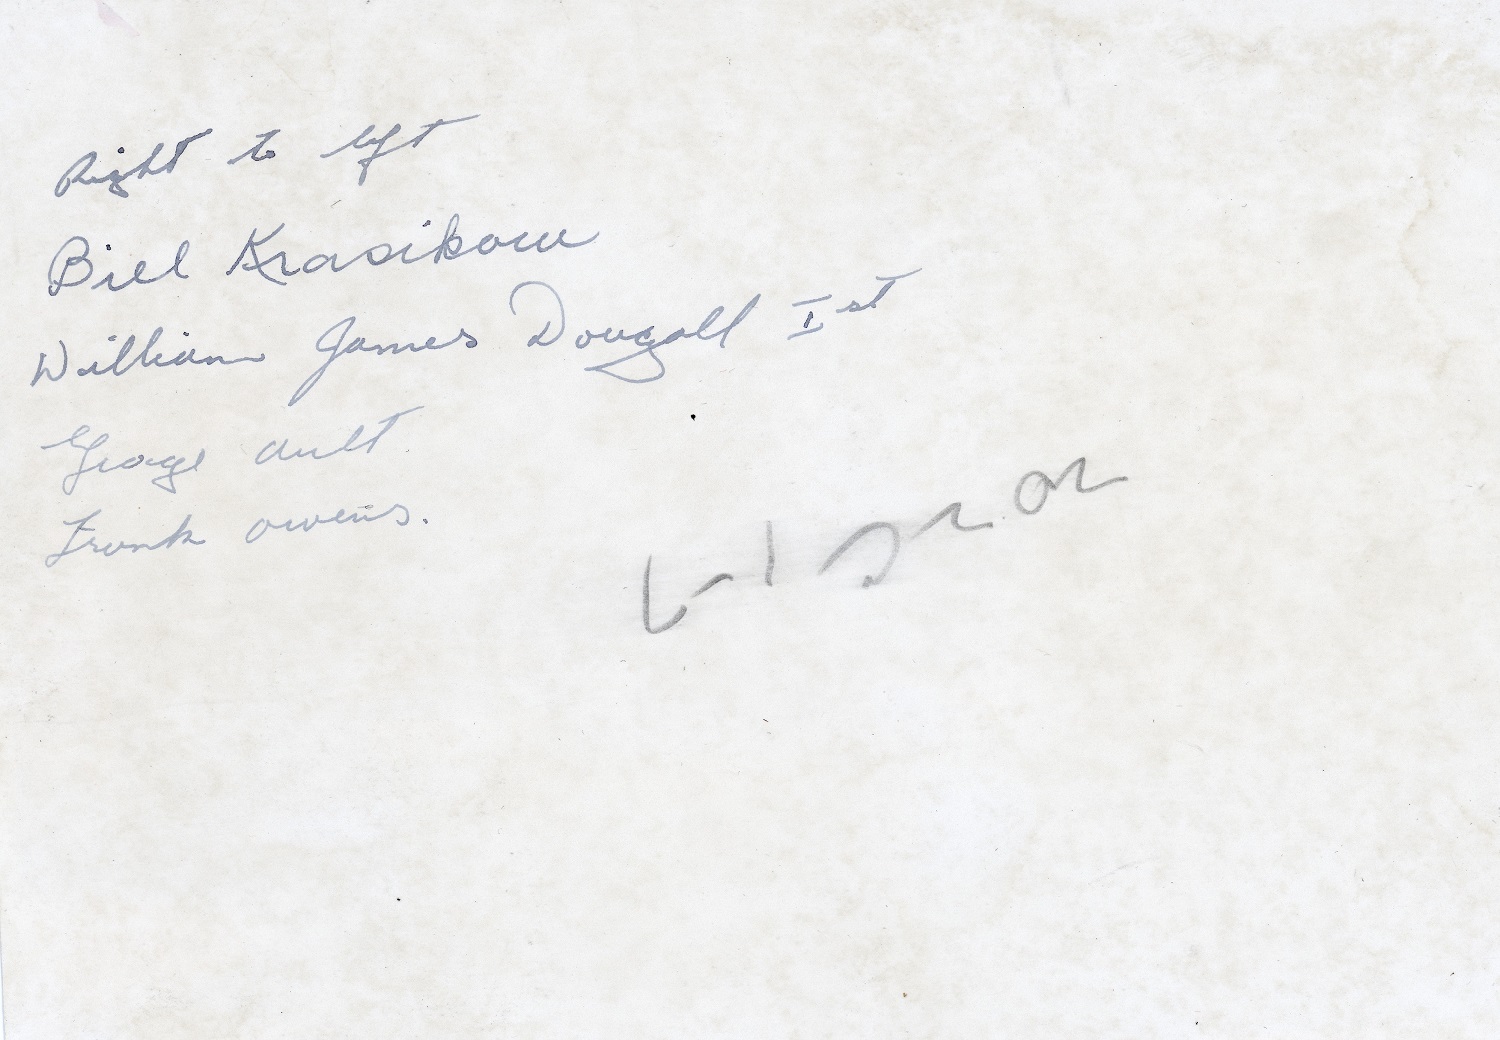 Right to left
Bill Krasikow
William James Dougall Ist
George Ault
Frank Owens.